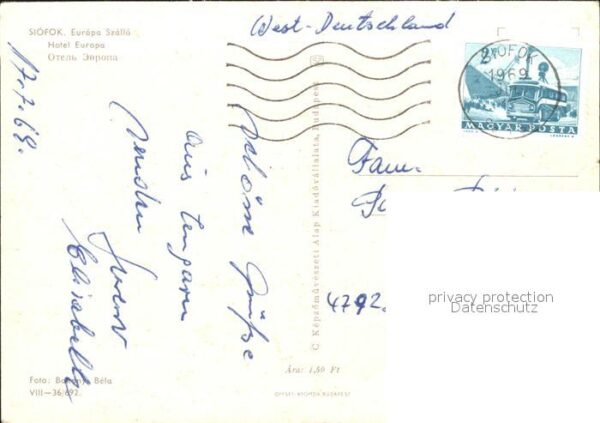 SIÓFOK. Európa Szálló
Hotel Europa
Отель Эвропа
17.7.69.
schöne Grüße
aus Ungarn
senden
Elisabella
Foto: Béla
VIII—36/692.
© Képzőművészeti Alap Kiadóvállalata, Budapest
Ára: 1,50 Ft
West-Deutschland
SIÓFOK
1969
2Ft
MAGYAR POSTA
Fam.
4792.
privacy protection
Datenschutz